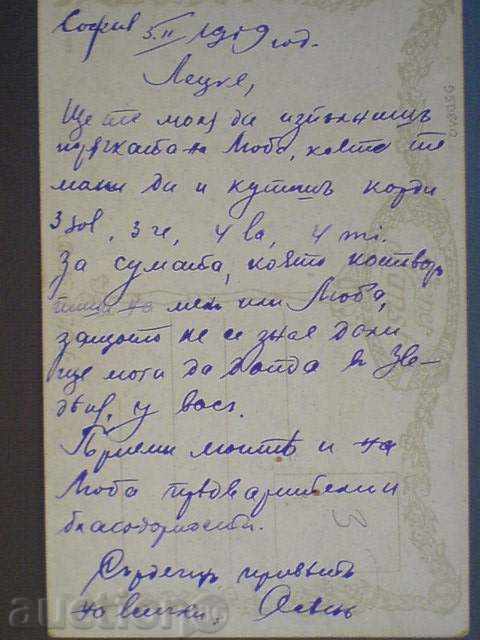 София 5.II 1919 год.
Лецке,
Ще те моля да изпълнишъ
поръчката на Люба, която те
моли да и купишъ корди
3 sol, 3 re, 4 la, 4 mi.
За сумата, която костватъ
пиши на мен или Люба,
защото не се знае дали
ще мога да дойда в
у васъ.
Приеми моитѣ и на
Люба предварителни
благодарности.
Сърдеченъ привѣтъ
на всички.
auction